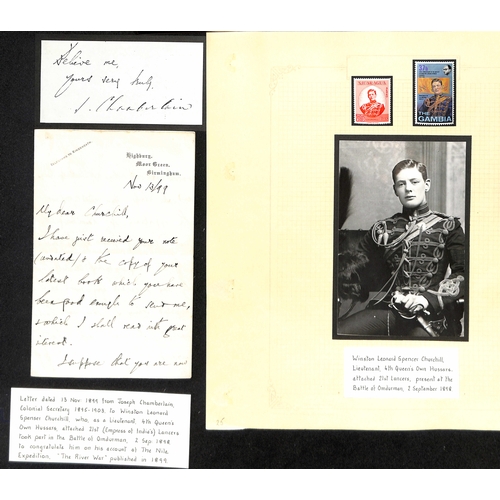 Believe me,
yours very truly
J. Chamberlain
Highbury,
Moor Green,
Birmingham.
Nov 13/99
My dear Churchill,
I have just received your note
(undated) & the copy of your
latest book which you have
been good enough to send me,
& which I shall read with great
interest.
I suppose that you are now
Letter dated 13 Nov 1899 from Joseph Chamberlain,
Colonial Secretary 1895-1903 to Winston Leonard
Spencer Churchill, who, as a Lieutenant, 4th Queen's
Own Hussars, attached 21st (Empress of India's) Lancers
took part in the Battle of Omdurman, 2 Sep 1898
to congratulate him on his account of The Nile
Expedition, "The River War" published in 1899
THE
GAMBIA
Winston Leonard Spencer Churchill,
Lieutenant, 4th Queen's Own Hussars
attached 21st Lancers, present at The
Battle of Omdurman, 2 September 1898